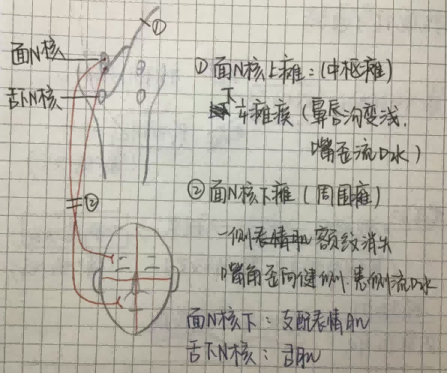 ①
面N核
舌下N核
②
①面N核上瘫:(中枢瘫)
下
车瘫痪(鼻唇沟变浅.
嘴歪流口水)
②面N核下瘫(周围瘫)
一侧表情肌额纹消失
嘴角歪向健侧.患侧流口水
面N核下:支配表情肌
舌下N核:舌肌